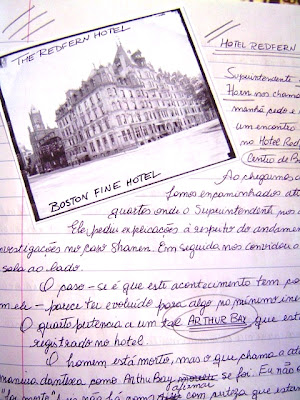 THE REDFERN HOTEL
BOSTON FINE HOTEL
HOTEL REDFERN
Superintendente
Horn nos chamo
manhã cedo e
um encontro
no Hotel Red
Centro de Bo
Ao chegarmos a
fomos encaminhados até
quartos onde o Superintendente nos
Ele pediu explicações à respeito do andamen
nvestigações no caso Shanen. Em seguida nos convidou a
sala ao lado.
O caso - se é que este acontecimento tem co
m ele - parece ter evoluído para algo no mínimo ine
O quarto pertencia a um tal ARTHUR BAY, que esta
registrado no hotel.
O homem está morto, mas o que chama a aten
maneira dantesca como Arthur Bay se foi. Eu não
afirmar
com certeza que estav